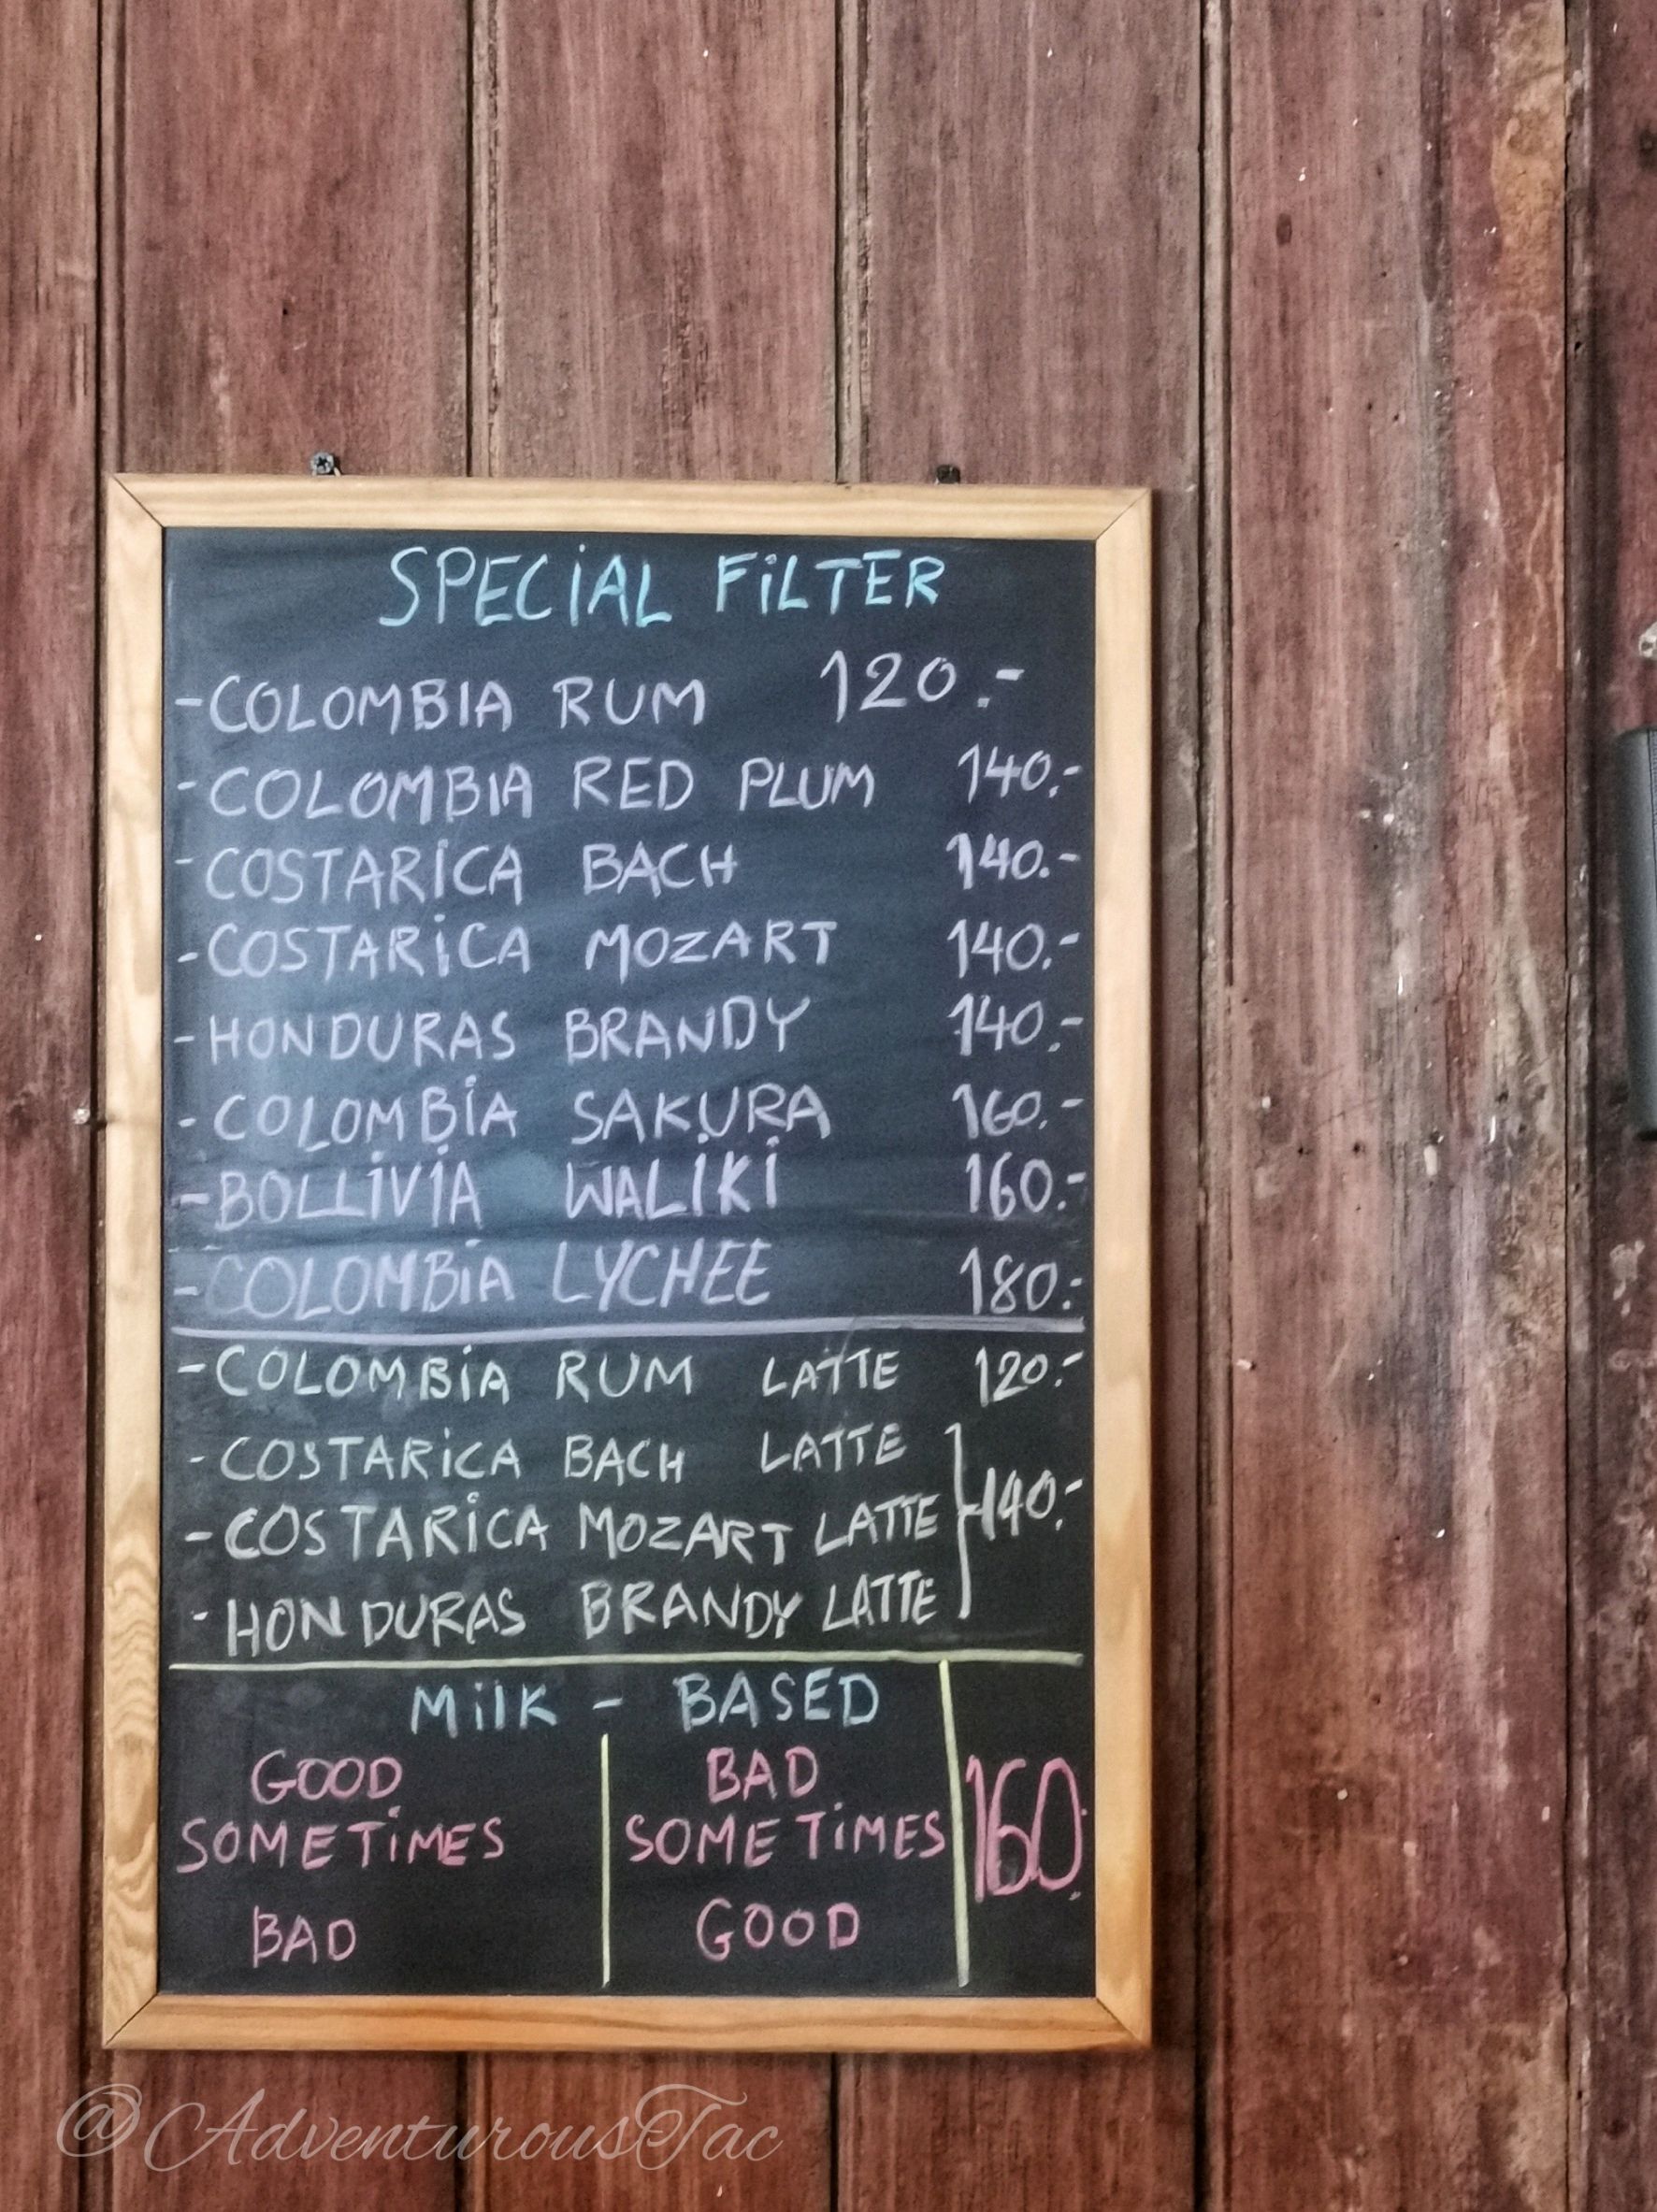 SPECIAL FILTER
-COLOMBIA RUM 120.-
-COLOMBIA RED PLUM 140.-
-COSTARICA BACH 140.-
-COSTARICA MOZART 140.-
-HONDURAS BRANDY 140.-
-COLOMBIA SAKURA 160.-
-BOLLIVIA WALIKI 160.-
-COLOMBIA LYCHEE 180.-
-COLOMBIA RUM LATTE 120.-
-COSTARICA BACH LATTE
-COSTARICA MOZART LATTE 140.-
-HONDURAS BRANDY LATTE
MilK - BASED
GOOD
SOMETIMES
BAD
BAD
SOMETIMES
GOOD
160.-
@AdventurousTac